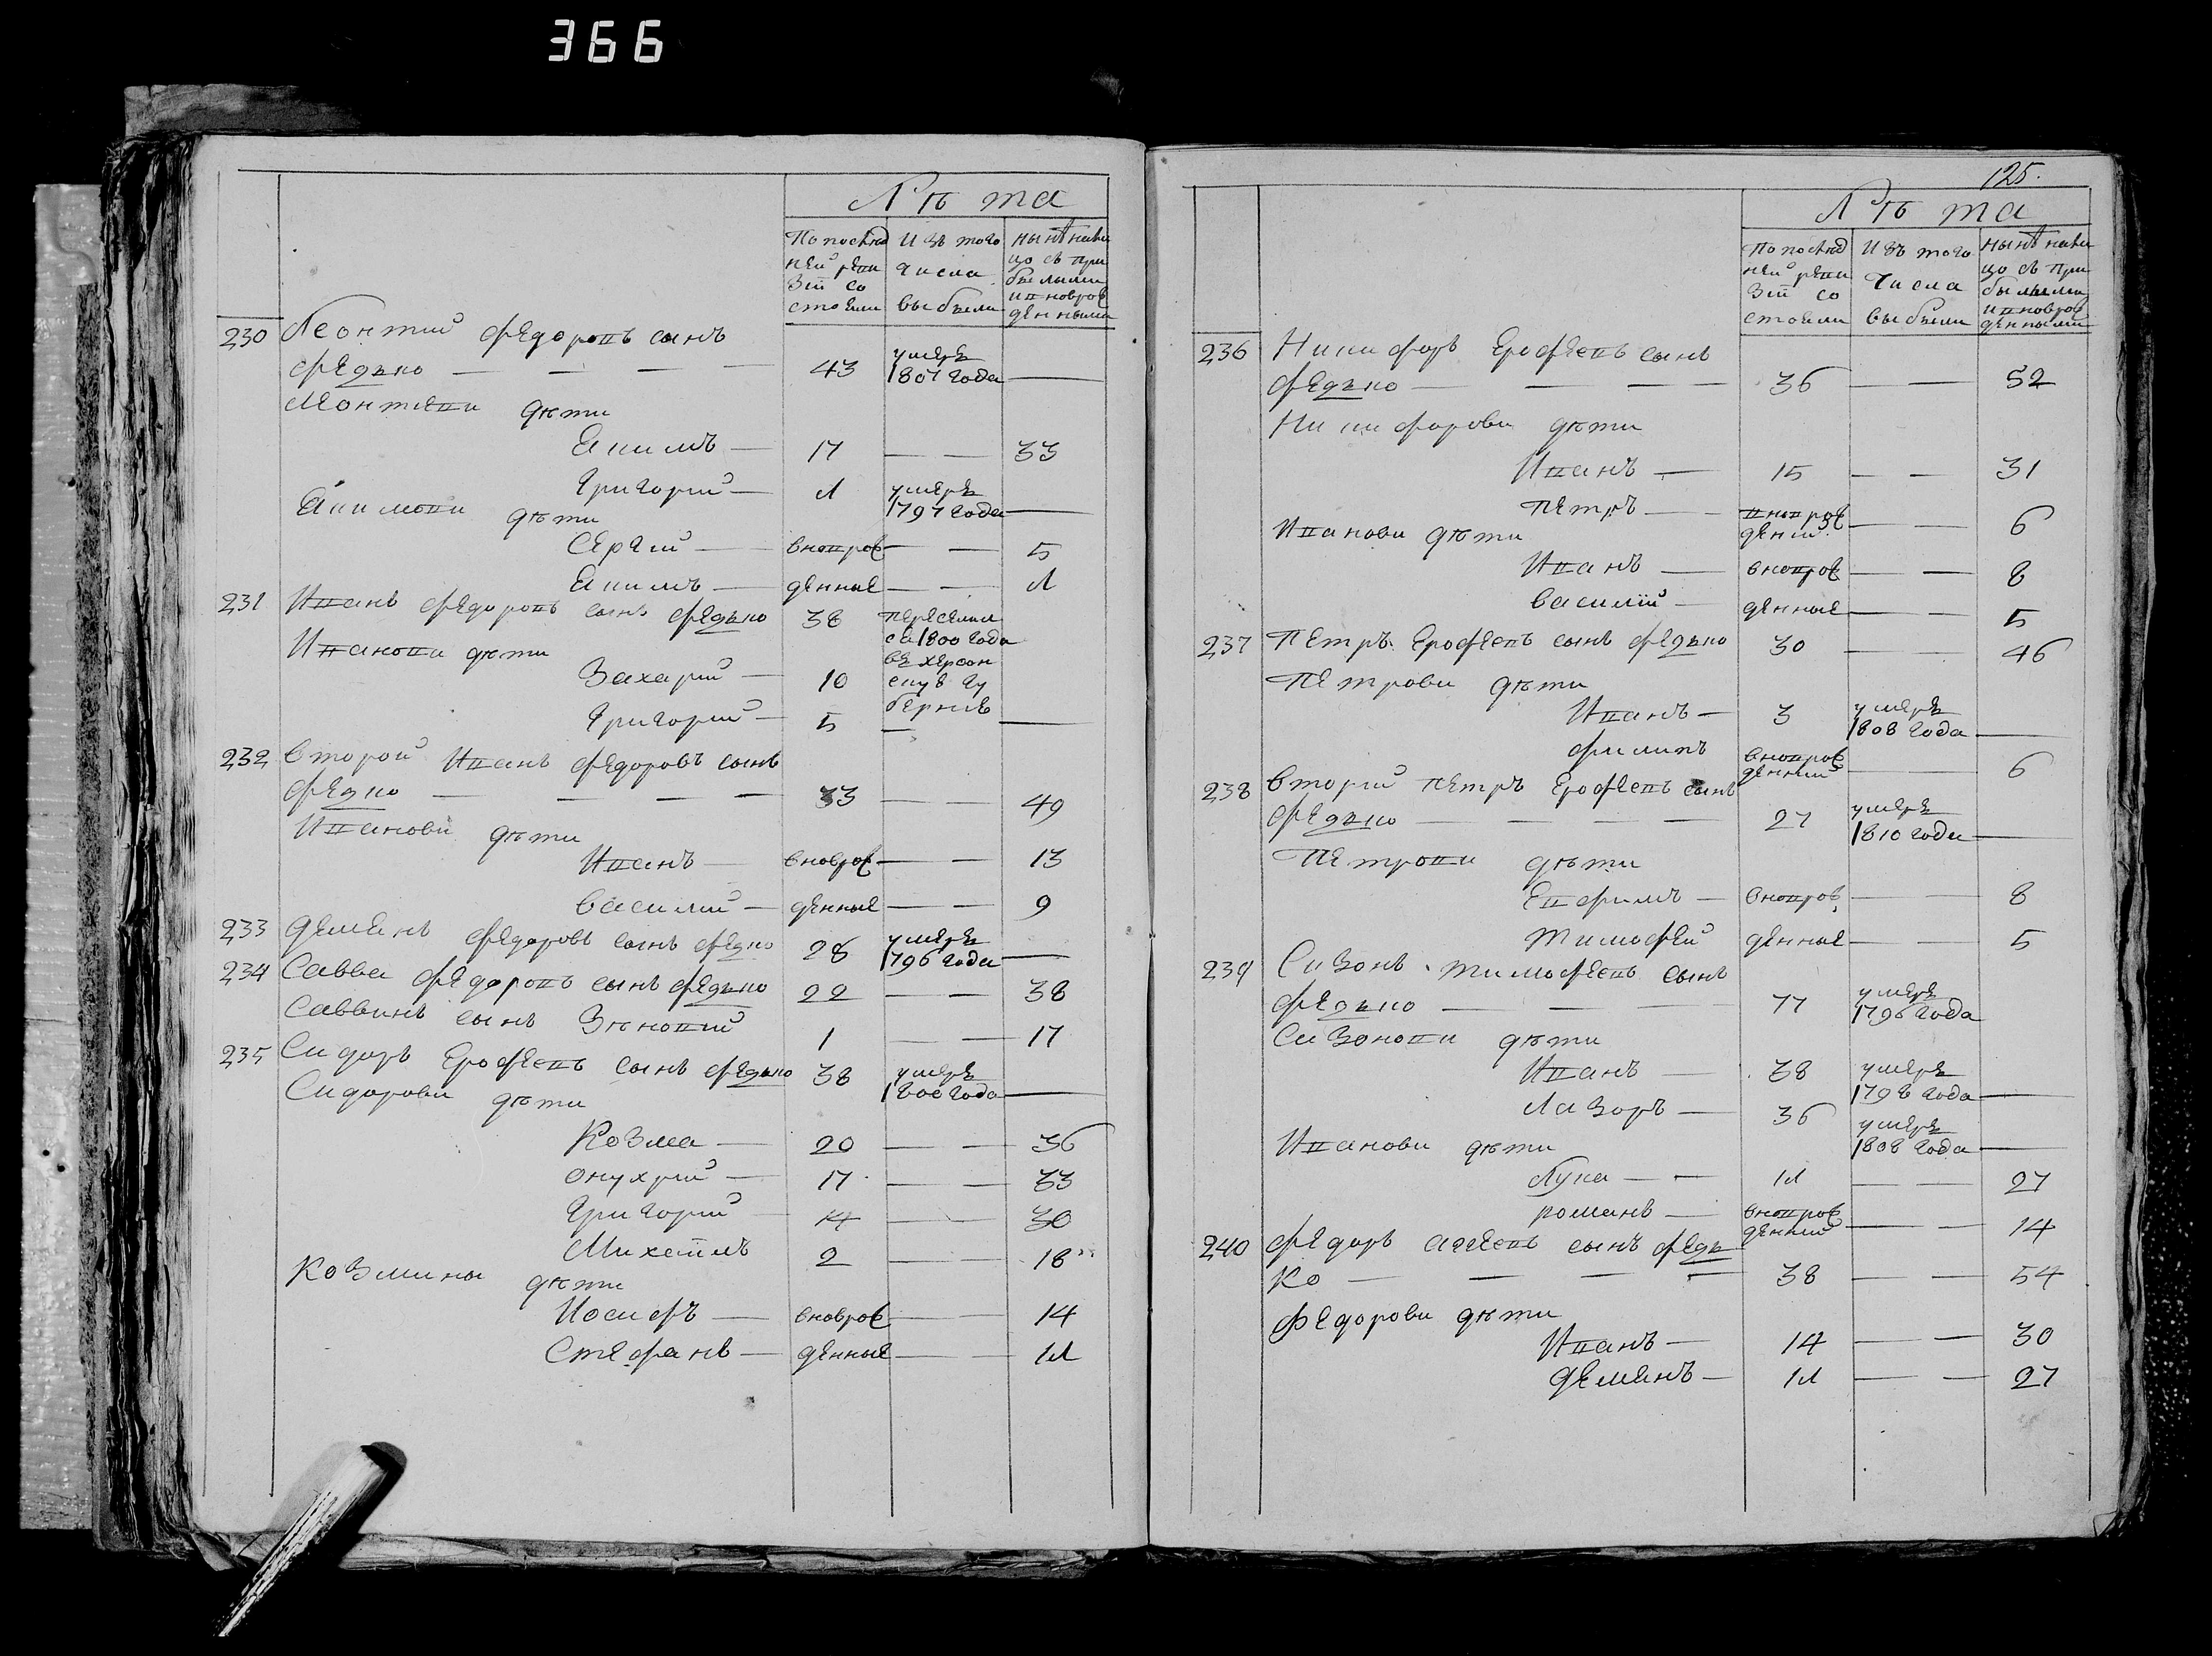 366
Лѣта
По послѣд
ней реви
зіи со
стояли
Изъ того
числа
выбыли
нынѣ нали
цо съ при
былыми
и новорож
денными
230 Леонтий федоровъ сынъ
федько — — — — 43 умерѣ 1807 года —
Леонтіеви дѣти
Екимъ — 17 — — 33
Григорий — 11 умерѣ 1797 года —
Екимови дѣти
Сергий — вновРож — — 5
Екимъ — денные — — 1
231 Иванъ федоровъ сынъ федько 38 переселил
ся 1800 года
въ херсон
скую гу
бернію
Иванови дѣти
Захарий — 10
Григорий — 5 — —
232 Второй Иванъ федоровъ сынъ
федко — — — — 33 — — 49
Иванови дѣти
Иванъ — вноврож — — 13
Василий — денные — — 9
233 демянъ федоровъ сынъ федко 28 умерѣ 1796 года —
234 Савва федоровъ сынъ федько 22 — — 38
Саввинъ сынъ Зѣновий 1 — — 17
235 Сидоръ Ерофеевъ сынъ федько 38 умерѣ 1800 года —
Сидорови дѣти
Козма — 20 — — 36
онухрий — 17 — — 33
Григорий — 14 — — 30
Михаилъ 2 — — 18
Козмины дѣти
Иосифъ — вноврож — — 14
Стефанъ — денные — — 11
125.
Лѣта
По послѣд
ней реви
зіи со
стояли
Изъ того
числа
выбыли
нынѣ нали
цо съ при
былыми
и новорож
денными
236 Никифоръ Ерофеевъ сынъ
федько — — — 36 — — 52
Никифорови дѣти
Иванъ — 15 — — 31
петръ — вноврож
дений — — 6
Иванови дѣти
Иванъ — вноврож — — 8
василій — денные — — 5
237 Петръ Ерофеевъ сынъ федько 30 — — 46
Петрови дѣти
Иванъ — 3 умерѣ 1808 года —
филипъ вноврож
денний — — 6
238 Вторий петръ Ерофеевъ сынъ
федько — — — — 27 умерѣ 1810 года —
Петрови дѣти
Евфимъ — вноврож — — 8
тимофей денные — — 5
239 Сизонъ тимофеевъ сынъ
федько — — — 77 умерѣ 1796 года
Сизонови дѣти
Иванъ — 38 умерѣ 1798 года —
Лазоръ — 36 умерѣ 1808 года —
Иванови дѣти
Лука — — 11 — — 27
романъ — вноврож
денний — — 14
240 федоръ агеевъ сынъ федь
ко — — — — 38 — — 54
Федорови дѣти
Иванъ — 14 — — 30
демянъ — 11 — — 27